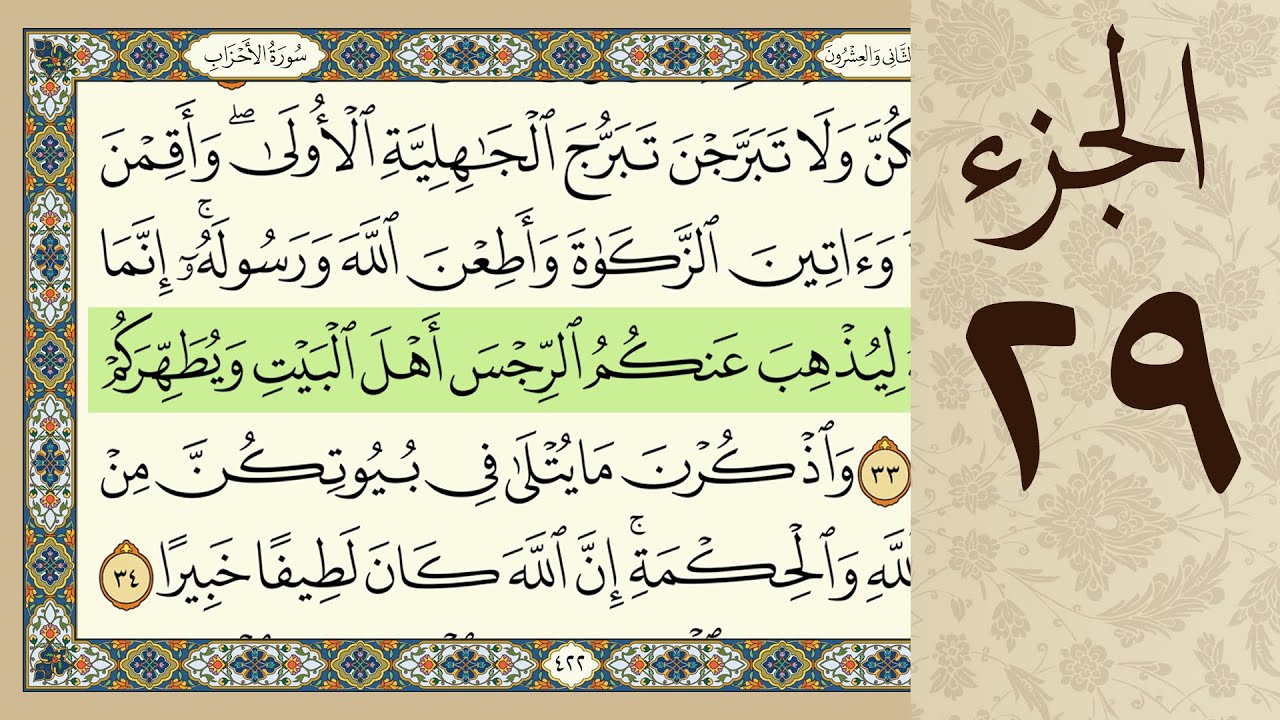 سُورَةُ الأَحْزَابِ
الثَّانِى وَالعِشْرُونَ
كُنَّ وَلَا تَبَرَّجْنَ تَبَرُّجَ ٱلْجَٰهِلِيَّةِ ٱلْأُولَىٰۖ وَأَقِمْنَ
وَءَاتِينَ ٱلزَّكَوٰةَ وَأَطِعْنَ ٱللَّهَ وَرَسُولَهُۥٓۚ إِنَّمَا
لِيُذْهِبَ عَنكُمُ ٱلرِّجْسَ أَهْلَ ٱلْبَيْتِ وَيُطَهِّرَكُمْ
٣٣ وَٱذْكُرْنَ مَا يُتْلَىٰ فِى بُيُوتِكُنَّ مِنْ
ٱللَّهِ وَٱلْحِكْمَةِۚ إِنَّ ٱللَّهَ كَانَ لَطِيفًا خَبِيرًا ٣٤
٤٢٢
الجزء
٢٩